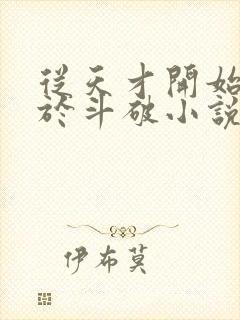 從天才開始
於斗破小說
伊布莫